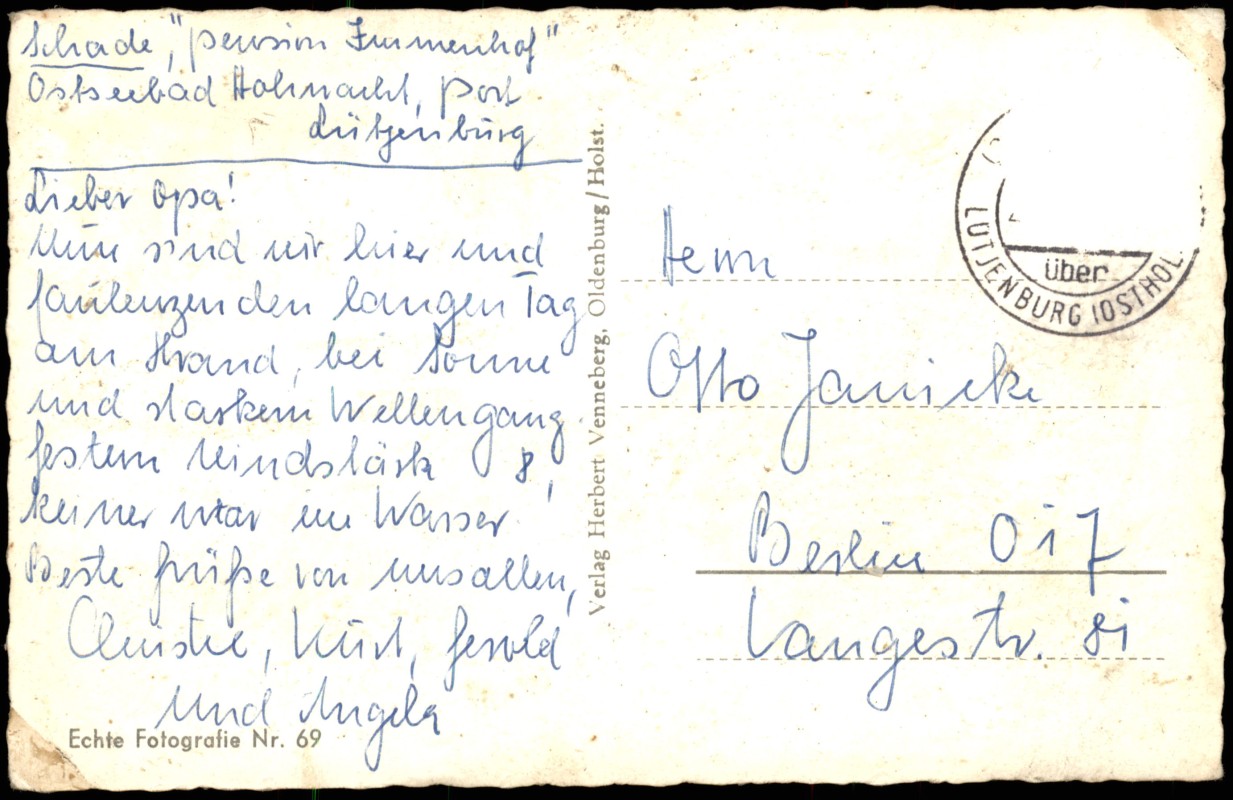 Schade, "Pension Immenhof"
Ostseebad Hohwacht, Post
Lütjenburg
Lieber Opa!
Nun sind wir hier und
faulenzen den langen Tag
am Strand, bei Sonne
und starkem Wellengang.
Gestern Windstärke 8,
keiner war im Wasser.
Beste Grüße von uns allen,
Christel, Kurt, Gerold
und Angela
Echte Fotografie Nr. 69
Verlag Herbert Venneberg, Oldenburg/Holst.
über
LÜTJENBURG (OSTHOL
Herrn
Otto Janicke
Berlin O 17
Langestr. 81